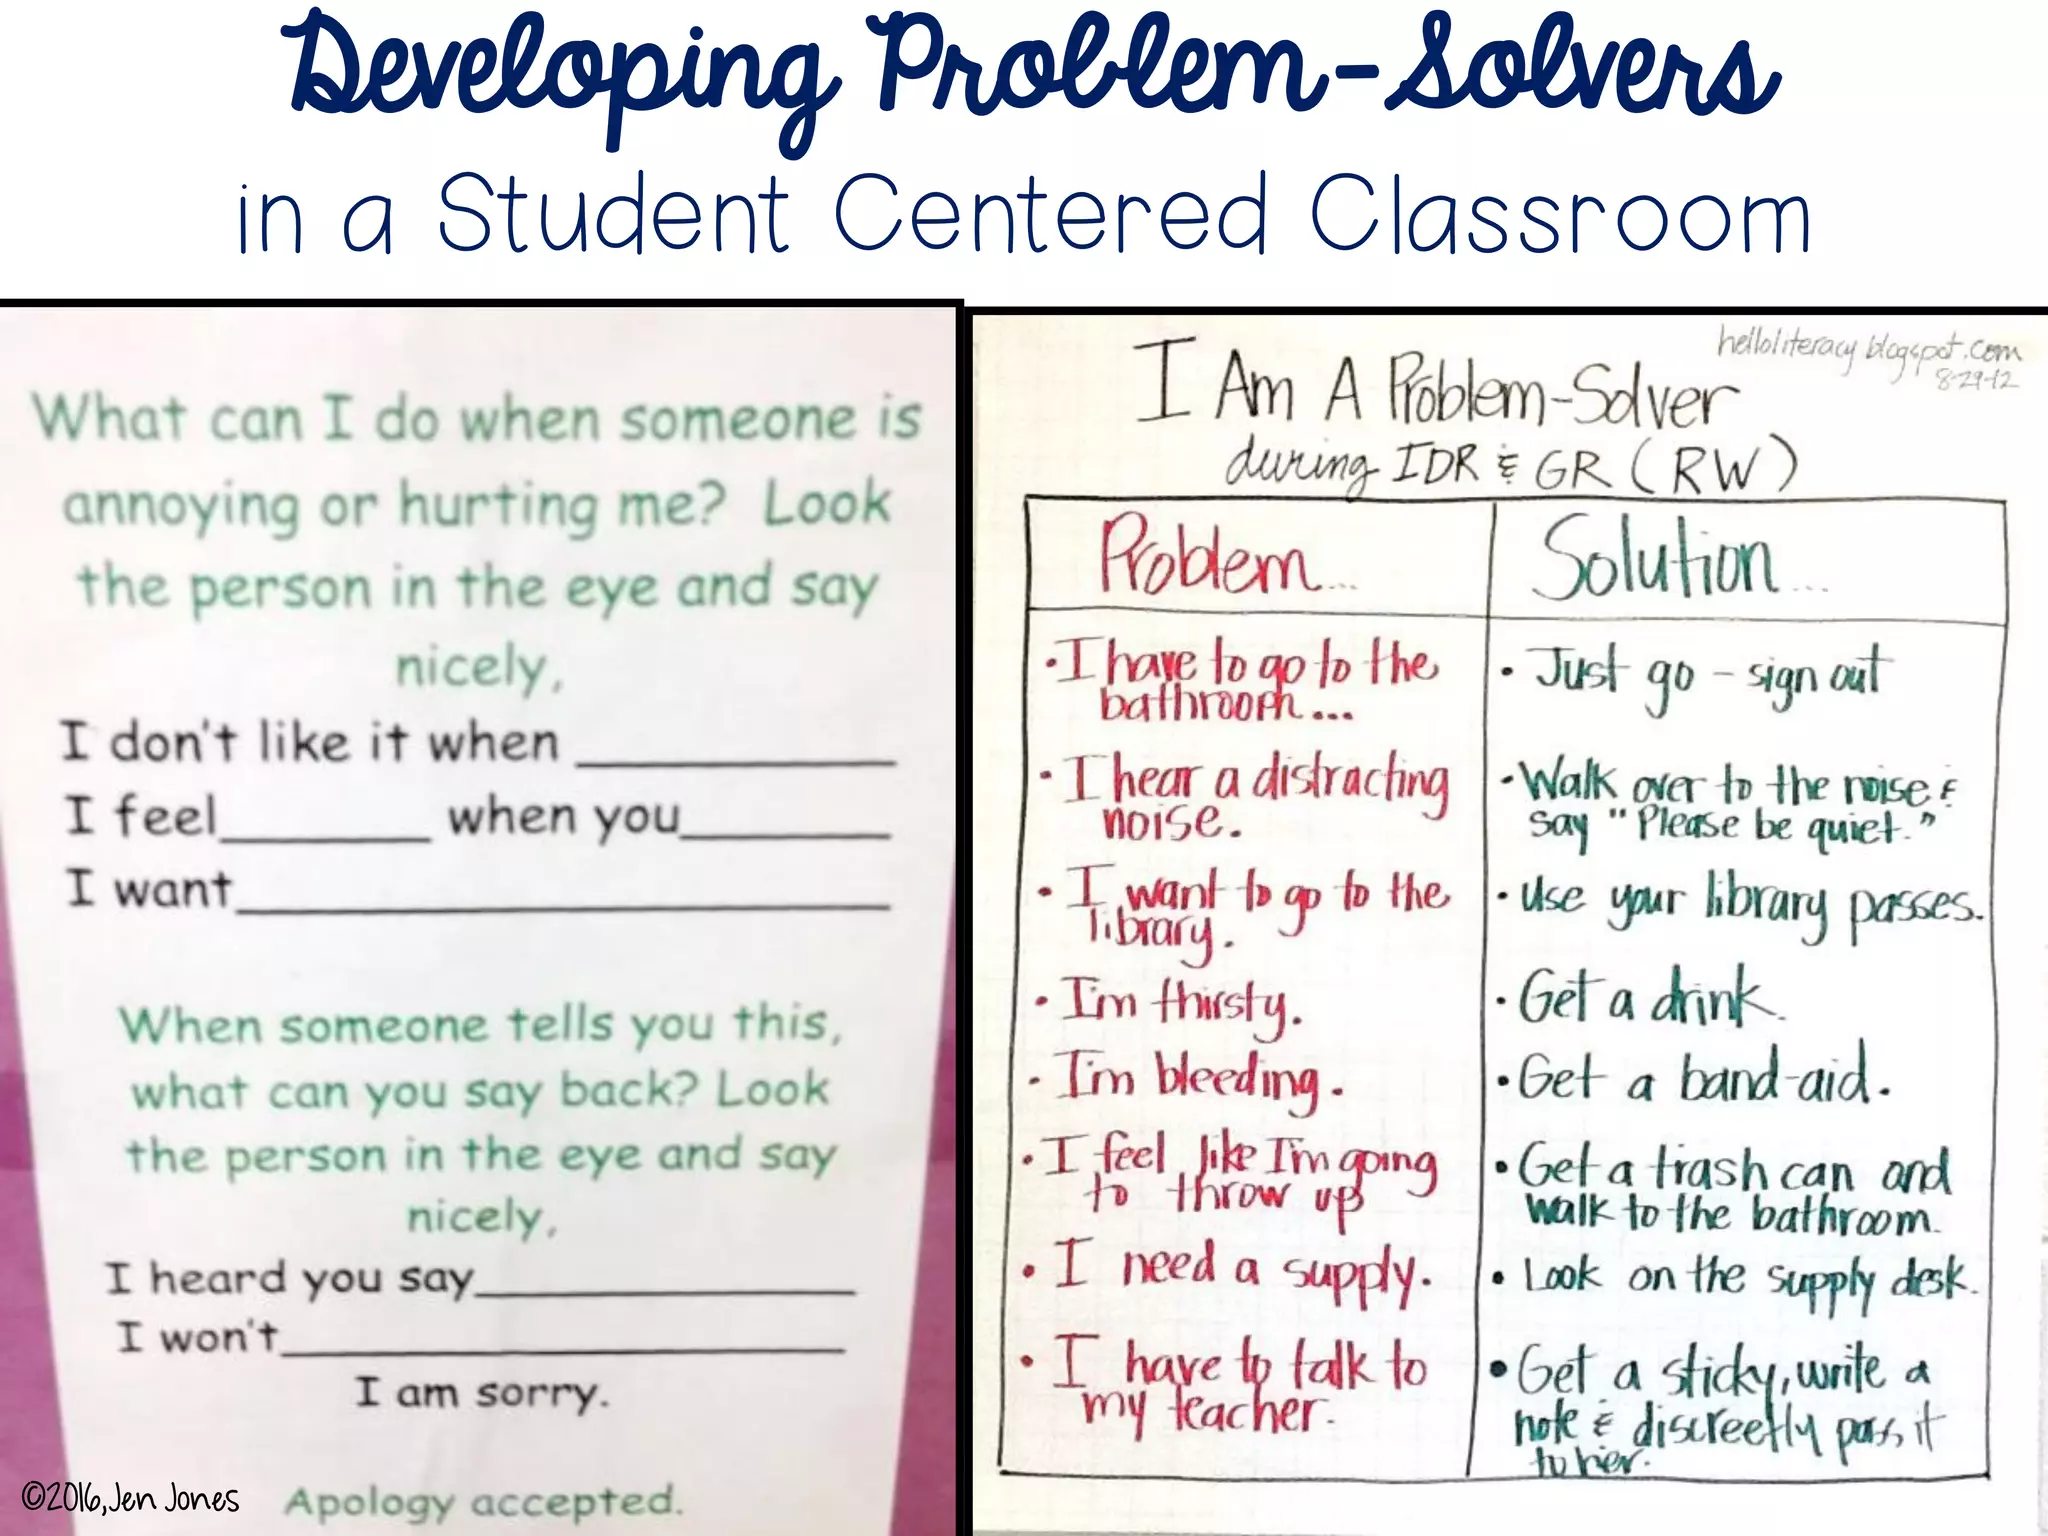 Developing Problem-Solvers
in a Student Centered Classroom
What can I do when someone is
annoying or hurting me? Look
the person in the eye and say
nicely,
I don't like it when __________
I feel_______ when you_______
I want______________________
When someone tells you this,
what can you say back? Look
the person in the eye and say
nicely,
I heard you say_____________
I won't___________________
I am sorry.
Apology accepted.
©2016,Jen Jones
helloliteracy.blogspot.com
8-29-12
I Am A Problem-Solver
during IDR & GR (RW)
Problem...
Solution...
• I have to go to the
bathroom...
• Just go - sign out
• I hear a distracting
noise.
• Walk over to the noise &
say "Please be quiet."
• I want to go to the
library.
• Use your library passes.
• I'm thirsty.
• Get a drink.
• I'm bleeding.
• Get a band-aid.
• I feel like I'm going
to throw up
• Get a trash can and
walk to the bathroom.
• I need a supply.
• Look on the supply desk.
• I have to talk to
my teacher.
• Get a sticky, write a
note & discreetly pass it
to her.